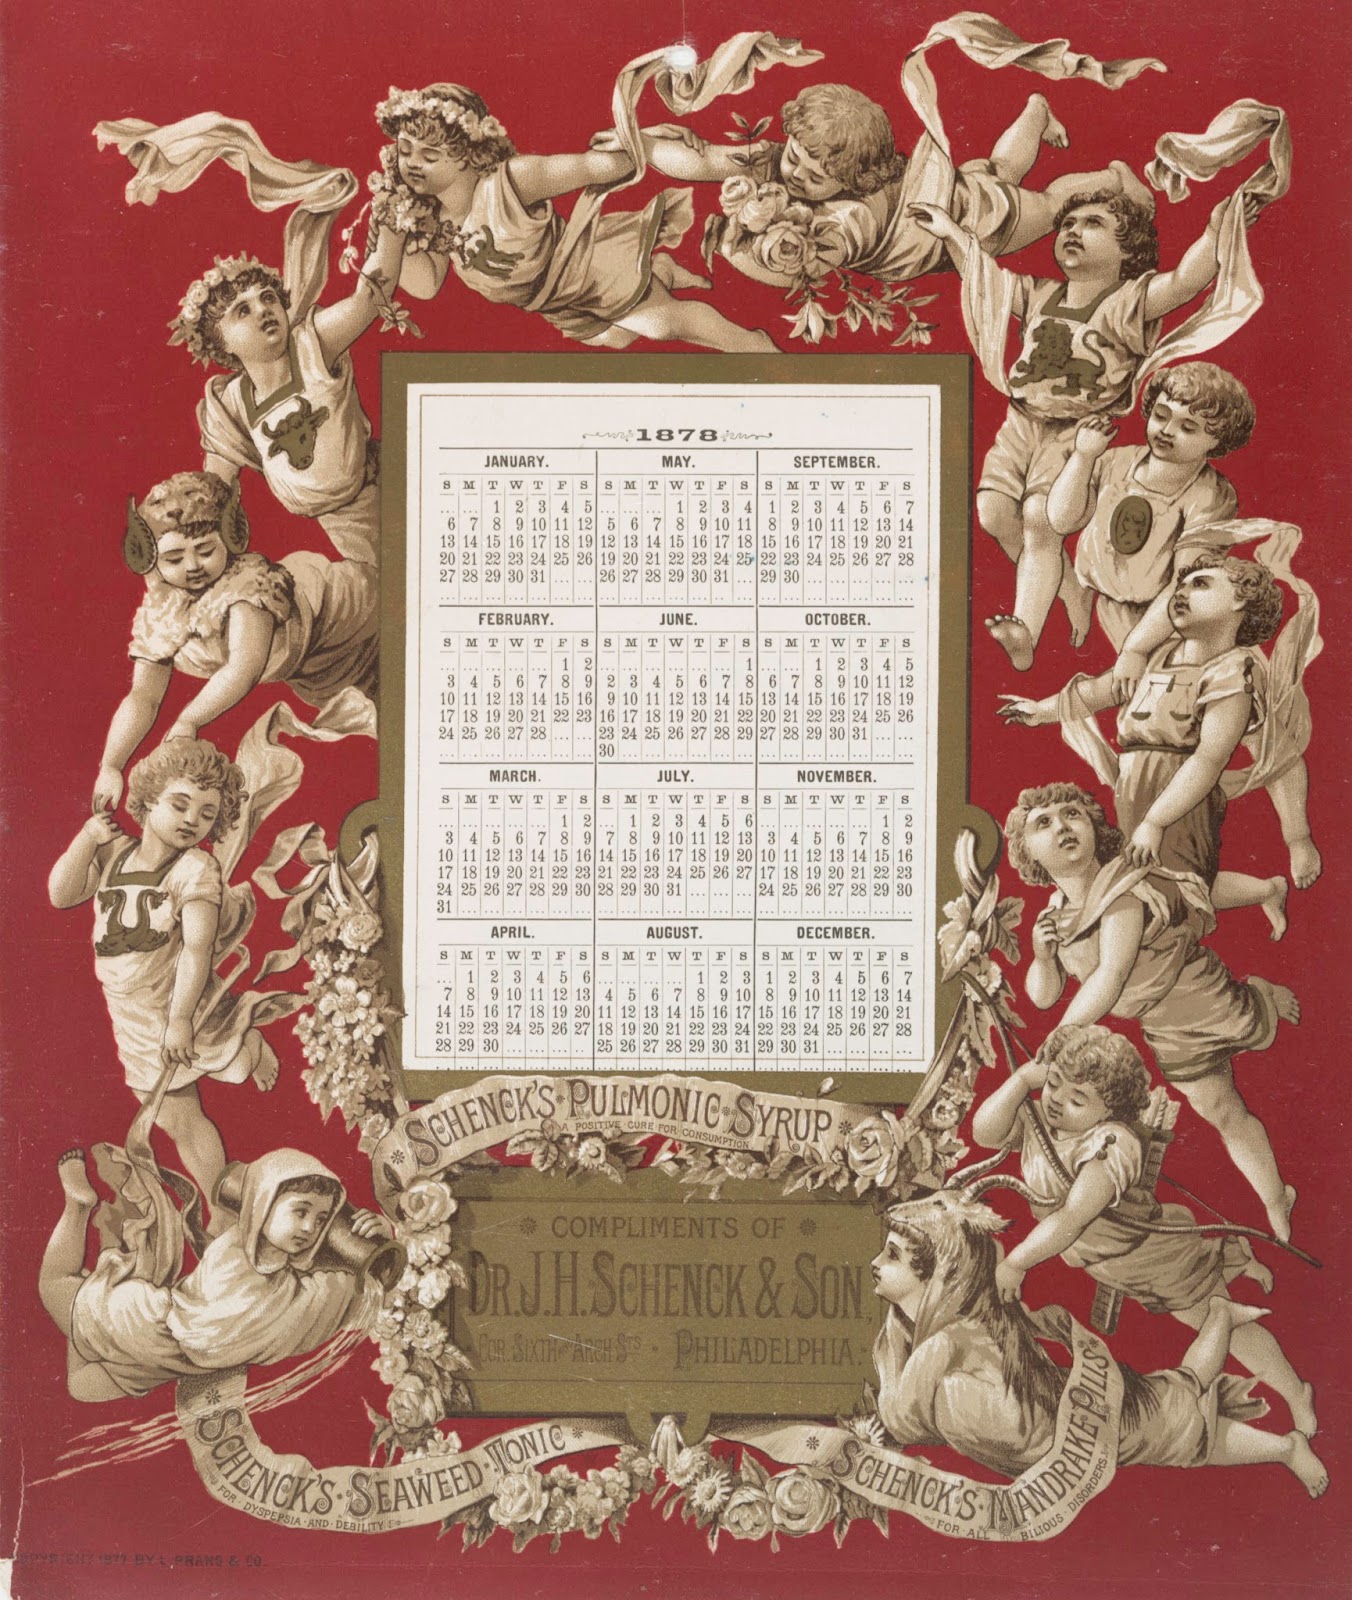 1878
JANUARY.
S M T W T F S
1 2 3 4 5
6 7 8 9 10 11 12
13 14 15 16 17 18 19
20 21 22 23 24 25 26
27 28 29 30 31
FEBRUARY.
S M T W T F S
1 2
3 4 5 6 7 8 9
10 11 12 13 14 15 16
17 18 19 20 21 22 23
24 25 26 27 28
MARCH.
S M T W T F S
1 2
3 4 5 6 7 8 9
10 11 12 13 14 15 16
17 18 19 20 21 22 23
24 25 26 27 28 29 30
31
APRIL.
S M T W T F S
1 2 3 4 5 6
7 8 9 10 11 12 13
14 15 16 17 18 19 20
21 22 23 24 25 26 27
28 29 30
MAY.
S M T W T F S
1 2 3 4
5 6 7 8 9 10 11
12 13 14 15 16 17 18
19 20 21 22 23 24 25
26 27 28 29 30 31
JUNE.
S M T W T F S
1
2 3 4 5 6 7 8
9 10 11 12 13 14 15
16 17 18 19 20 21 22
23 24 25 26 27 28 29
30
JULY.
S M T W T F S
1 2 3 4 5 6
7 8 9 10 11 12 13
14 15 16 17 18 19 20
21 22 23 24 25 26 27
28 29 30 31
AUGUST.
S M T W T F S
1 2 3
4 5 6 7 8 9 10
11 12 13 14 15 16 17
18 19 20 21 22 23 24
25 26 27 28 29 30 31
SEPTEMBER.
S M T W T F S
1 2 3 4 5 6 7
8 9 10 11 12 13 14
15 16 17 18 19 20 21
22 23 24 25 26 27 28
29 30
OCTOBER.
S M T W T F S
1 2 3 4 5
6 7 8 9 10 11 12
13 14 15 16 17 18 19
20 21 22 23 24 25 26
27 28 29 30 31
NOVEMBER.
S M T W T F S
1 2
3 4 5 6 7 8 9
10 11 12 13 14 15 16
17 18 19 20 21 22 23
24 25 26 27 28 29 30
DECEMBER.
S M T W T F S
1 2 3 4 5 6 7
8 9 10 11 12 13 14
15 16 17 18 19 20 21
22 23 24 25 26 27 28
29 30 31
SCHENCK'S · PULMONIC · SYRUP
A POSITIVE · CURE FOR · CONSUMPTION
COMPLIMENTS OF
DR. J. H. SCHENCK & SON,
COR. SIXTH AND ARCH STS · PHILADELPHIA.
SCHENCK'S · SEAWEED · TONIC
FOR · DYSPEPSIA · AND · DEBILITY
SCHENCK'S · MANDRAKE · PILLS
FOR · ALL BILIOUS · DISORDERS
COPYRIGHT 1877 BY L. PRANG & CO.